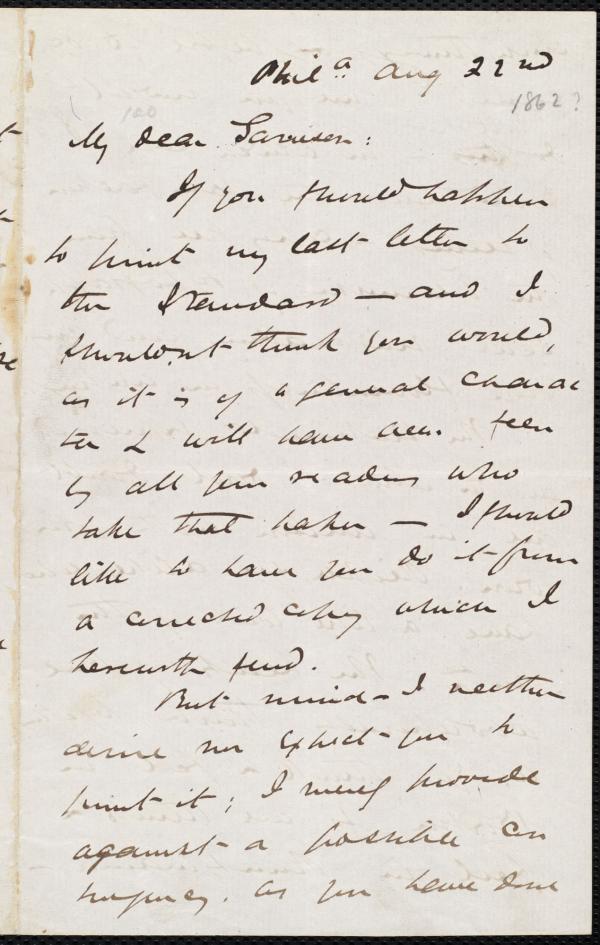 Phila Aug 22nd
1862?
100
My dear Garrison:
If you should happen
to print my last letter to
the Standard — and I
shouldn't think you would,
as it is of a general charac
ter & will have been seen
by all your readers who
take that paper — I should
like to have you do it from
a corrected copy which I
herewith send.
But mind — I neither
desire nor expect you to
print it; I merely provide
against a possible con
tingency. as you have done